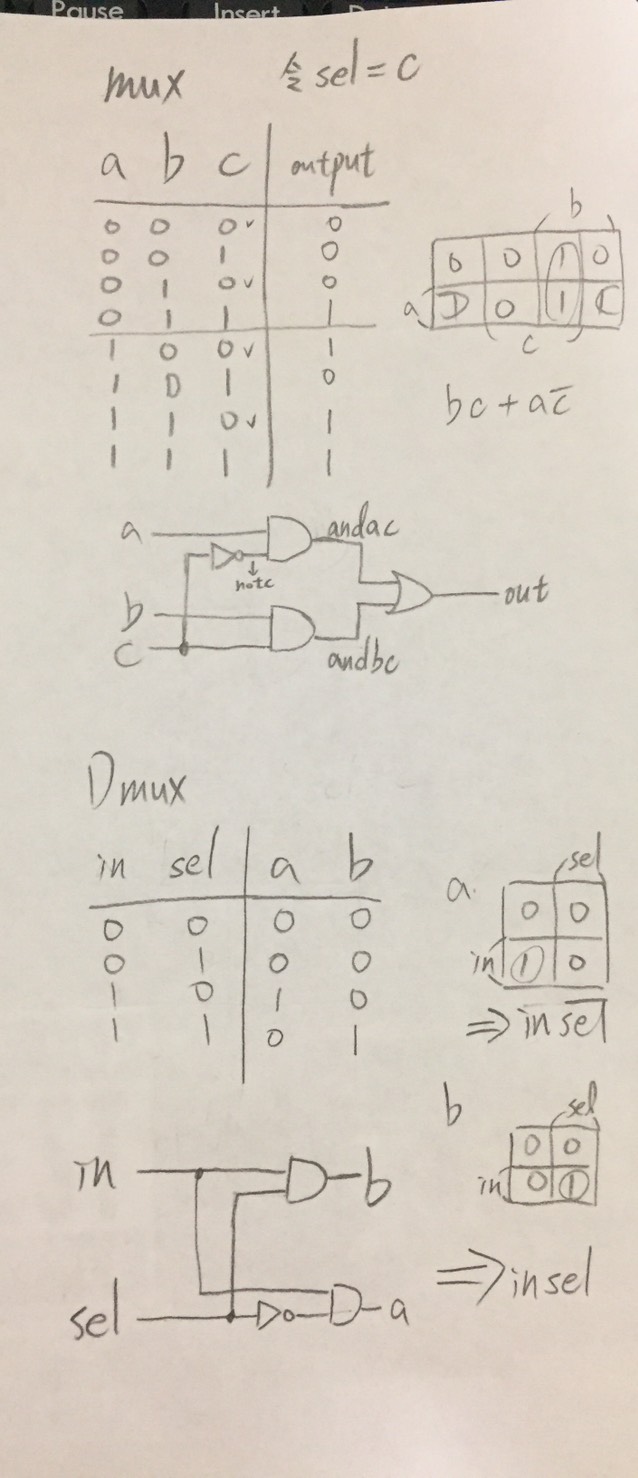 Pause Insert
mux 令 sel = c
a b c output
0 0 0 ✓ 0
0 0 1 0
0 1 0 ✓ 0
0 1 1 1
1 0 0 ✓ 1
1 0 1 0
1 1 0 ✓ 1
1 1 1 1
b
0 0 1 0
a 1 0 1 1
c
bc + ac̅
a andac
notc
b out
c andbc
Dmux
in sel a b
0 0 0 0
0 1 0 0
1 0 1 0
1 1 0 1
a. sel
0 0
in 1 0
⇒ in s̅e̅l̅
b sel
0 0
in 0 1
⇒ in sel
in b
sel a